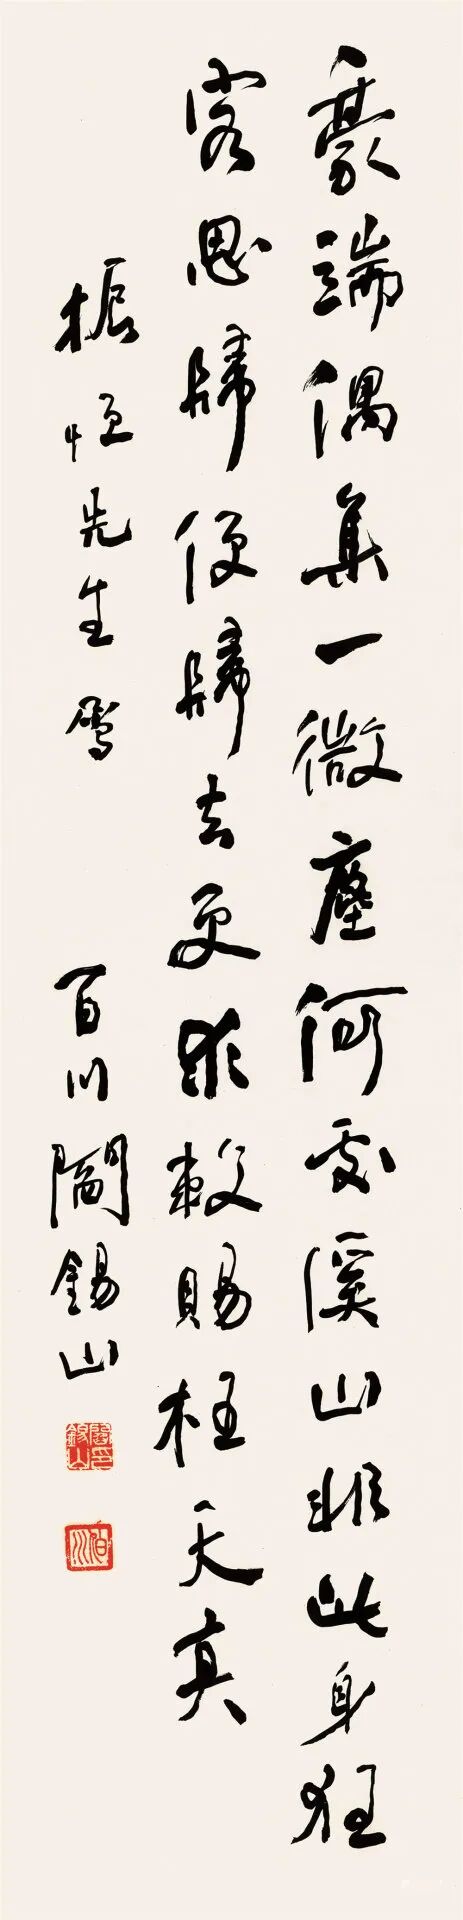 豪端偶集一微塵何處溪山非此身狂
客思歸便歸去更求敕賜枉天真
振恒先生屬
百川閻錫山
閻印錫山
伯川